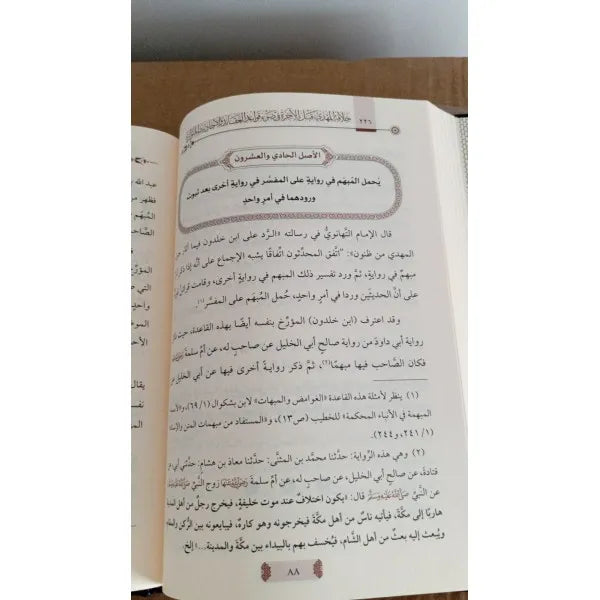 ٢٢٦
خلافة المهدي
الأصل الحادي والعشرون
يُحمل المُبهَم في روايةٍ على المفسَّر في روايةٍ أخرى بعد ثبوت
ورودهما في أمرٍ واحدٍ
قال الإمام التَّهانويُّ في رسالته «الرَّد على ابن خلدون فيما
المهدي من ظنون»: "اتَّفق المحدِّثون اتِّفاقًا يشبه الإجماع على أنَّه إذا ذكر
مبهمٌ في رواية، ثمَّ ورد تفسير ذلك المبهم في رواية أخرى، وقامت قرائن
على أنَّ الحديثَين وردا في أمرٍ واحدٍ، حُمل المُبهَم على المفسَّر"(١).
وقد اعترف (ابن خلدون) المؤرِّخ بنفسه أيضًا بهذه القاعدة، حيث
رواية أبي داودَ من رواية صالحٍ أبي الخليل عن صاحبٍ له، عن أمِّ سلمة
فكان الصَّاحب فيها مبهمًا(٢)، ثمَّ ذكر روايةً أخرى فيها عن أبي الخليل عن
(١) ينظر لأمثلة هذه القاعدة «الغوامض والمبهمات» لابن بشكوال (١/ ٦٩)، و«الأسماء
المبهمة في الأنباء المحكمة» للخطيب (ص١٣)، و«المستفاد من مبهمات المتن والإسناد
(١/ ٢٤١، و٢٤٤).
(٢) وهي هذه الرِّواية: حدَّثنا محمَّد بن المثنَّى: حدَّثنا معاذ بن هشام: حدَّثني أبي عن
قتادة، عن صالحٍ أبي الخليل، عن صاحبٍ له، عن أمِّ سلمة رضي الله عنها زوج النَّبيِّ صلى الله عليه وسلم
عن النَّبيِّ صلى الله عليه وسلم قال: «يكون اختلافٌ عند موت خليفةٍ، فيخرج رجلٌ من أهل المدينة
هاربًا إلى مكَّة، فيأتيه ناسٌ من أهل مكَّة فيخرجونه وهو كارهٌ، فيبايعونه بين الرُّكن والمقام
ويُبعث إليه بعثٌ من أهل الشَّام، فيُخسف بهم بالبيداء بين مكَّة والمدينة...» إلخ.
٨٨